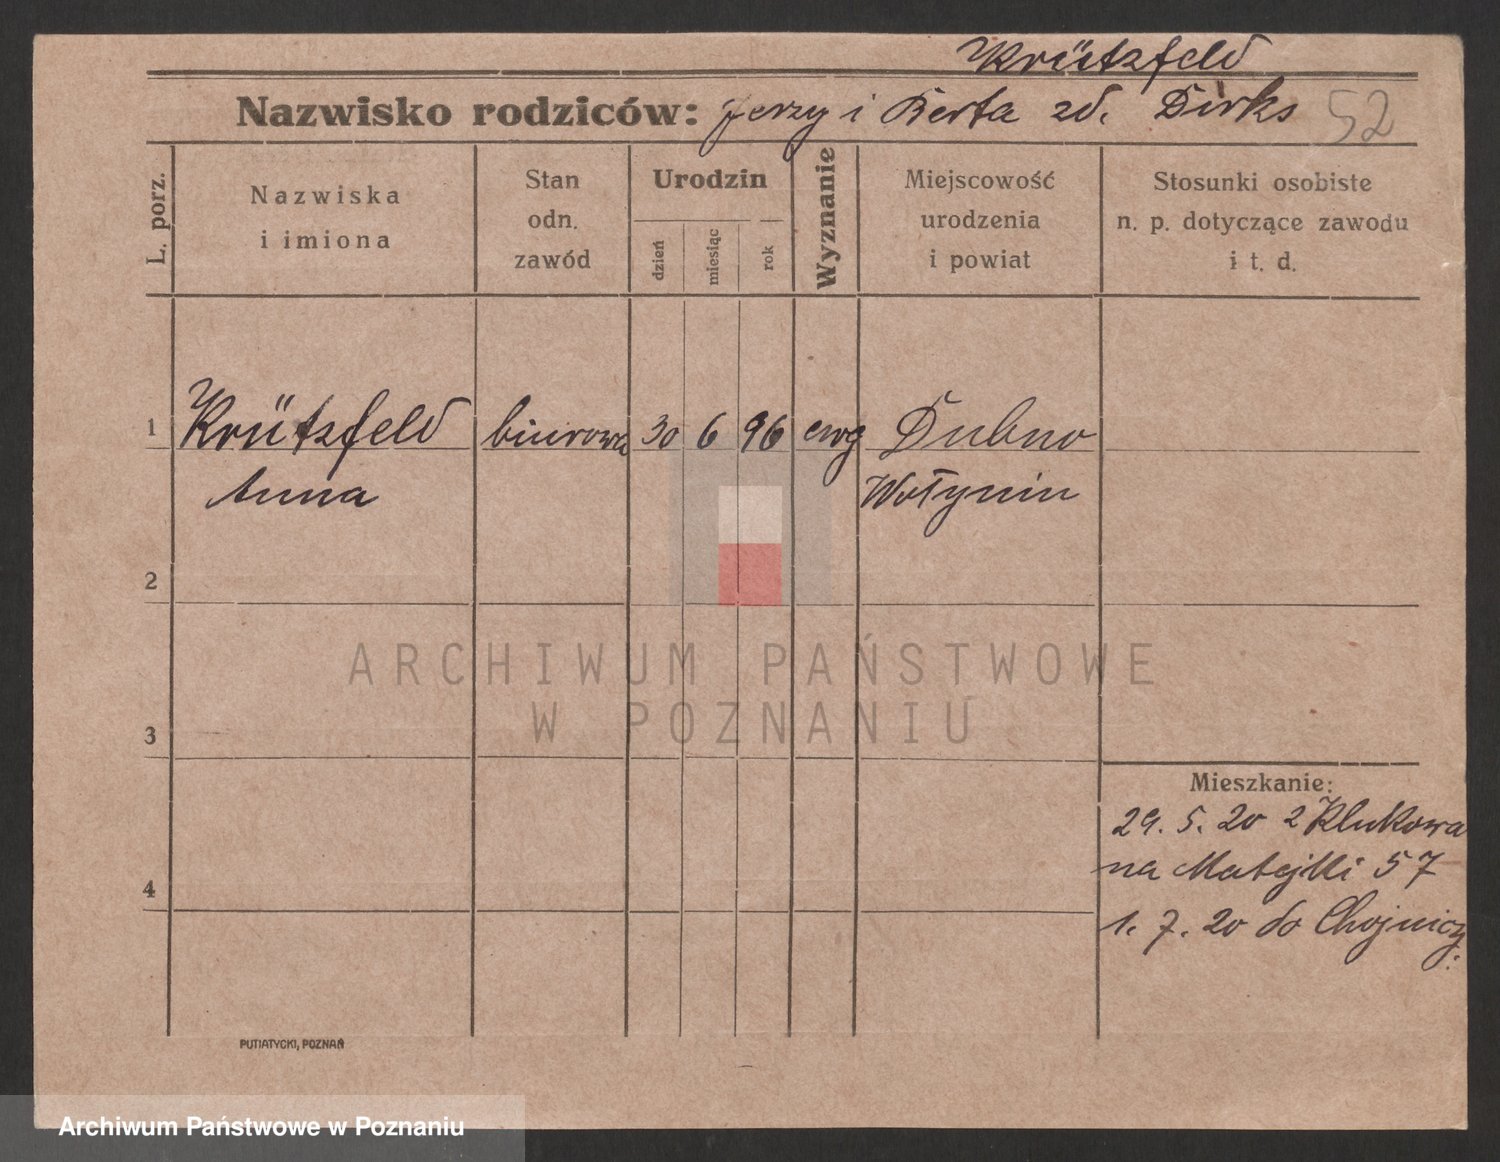 Krützfeld
Nazwisko rodziców: Jerzy i Berta zd. Dirks 52
L. porz.
Nazwiska
i imiona
Stan
odn.
zawód
Urodzin
dzień
miesiąc
rok
Wyznanie
Miejscowość
urodzenia
i powiat
Stosunki osobiste
n. p. dotyczące zawodu
i t. d.
1 Krützfeld biurowa 30 6 96 ewg Dubno
Anna Wołynin
2
ARCHIWUM PAŃSTWOWE
W POZNANIU
3
Mieszkanie:
29. 5. 20 z Klukowa
na Matejki 57
4
1. 7. 20 do Chojnicy
PUTIATYCKI, POZNAŃ
Archiwum Państwowe w Poznaniu